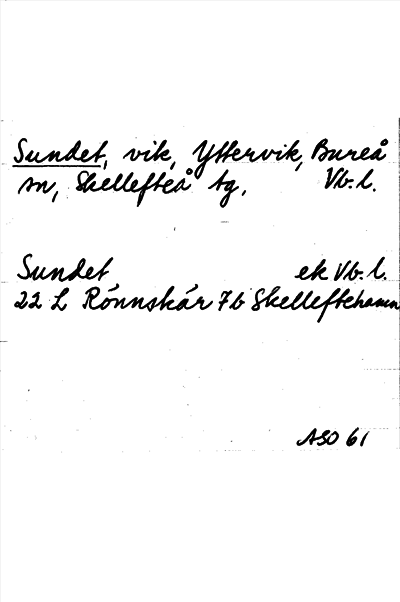 Sundet, vik, Yttervik, Bureå
sn, Skellefteå tg, Vb. l.
Sundet ek Vb. l.
22 L Rönnskär 7b Skelleftehamn
ASO 61